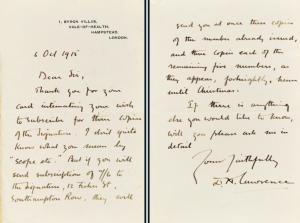 1, BYRON VILLAS,
VALE-OF-HEALTH,
HAMPSTEAD,
LONDON.
6 Oct 1915
Dear Sir,
Thank you for your
card intimating your wish
to subscribe for three copies
of the Signature. I don't quite
know what you mean by
"scope etc." But if you will
send subscription of 7/6 to
the Signature, 12 Fisher St,
Southampton Row, they will
send you at once three copies
of the number already issued,
and three copies each of the
remaining five numbers, as
they appear, fortnightly, from
until Christmas.
If there is anything
else you would like to know,
will you please ask me in
detail
Yours faithfully
D. H. Lawrence